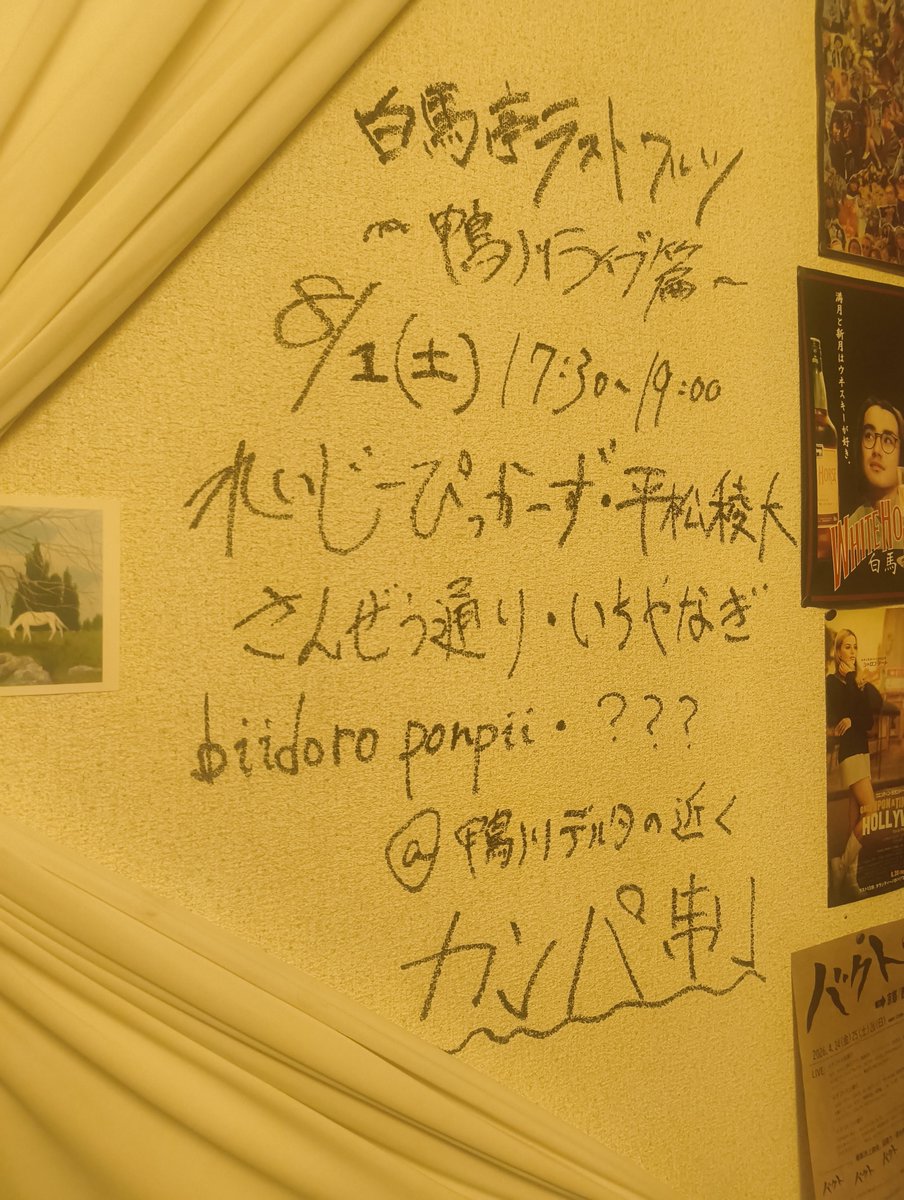 白馬亭ラストフルーツ
〜鴨川ライブ篇〜
8/1(土) 17:30〜19:00
れいじーぴっかーず・平松稜大
さんぜう通り・いちやなぎ
biidoro ponpii・???
@鴨川デルタの近く
カンパ制
満月と新月はウヰスキーが好き。
WHITEHO
白馬
HOLLYW
バクト
2026. 4. 24(金) 25(土) 26(日)
LIVE
バクト バクト バクト